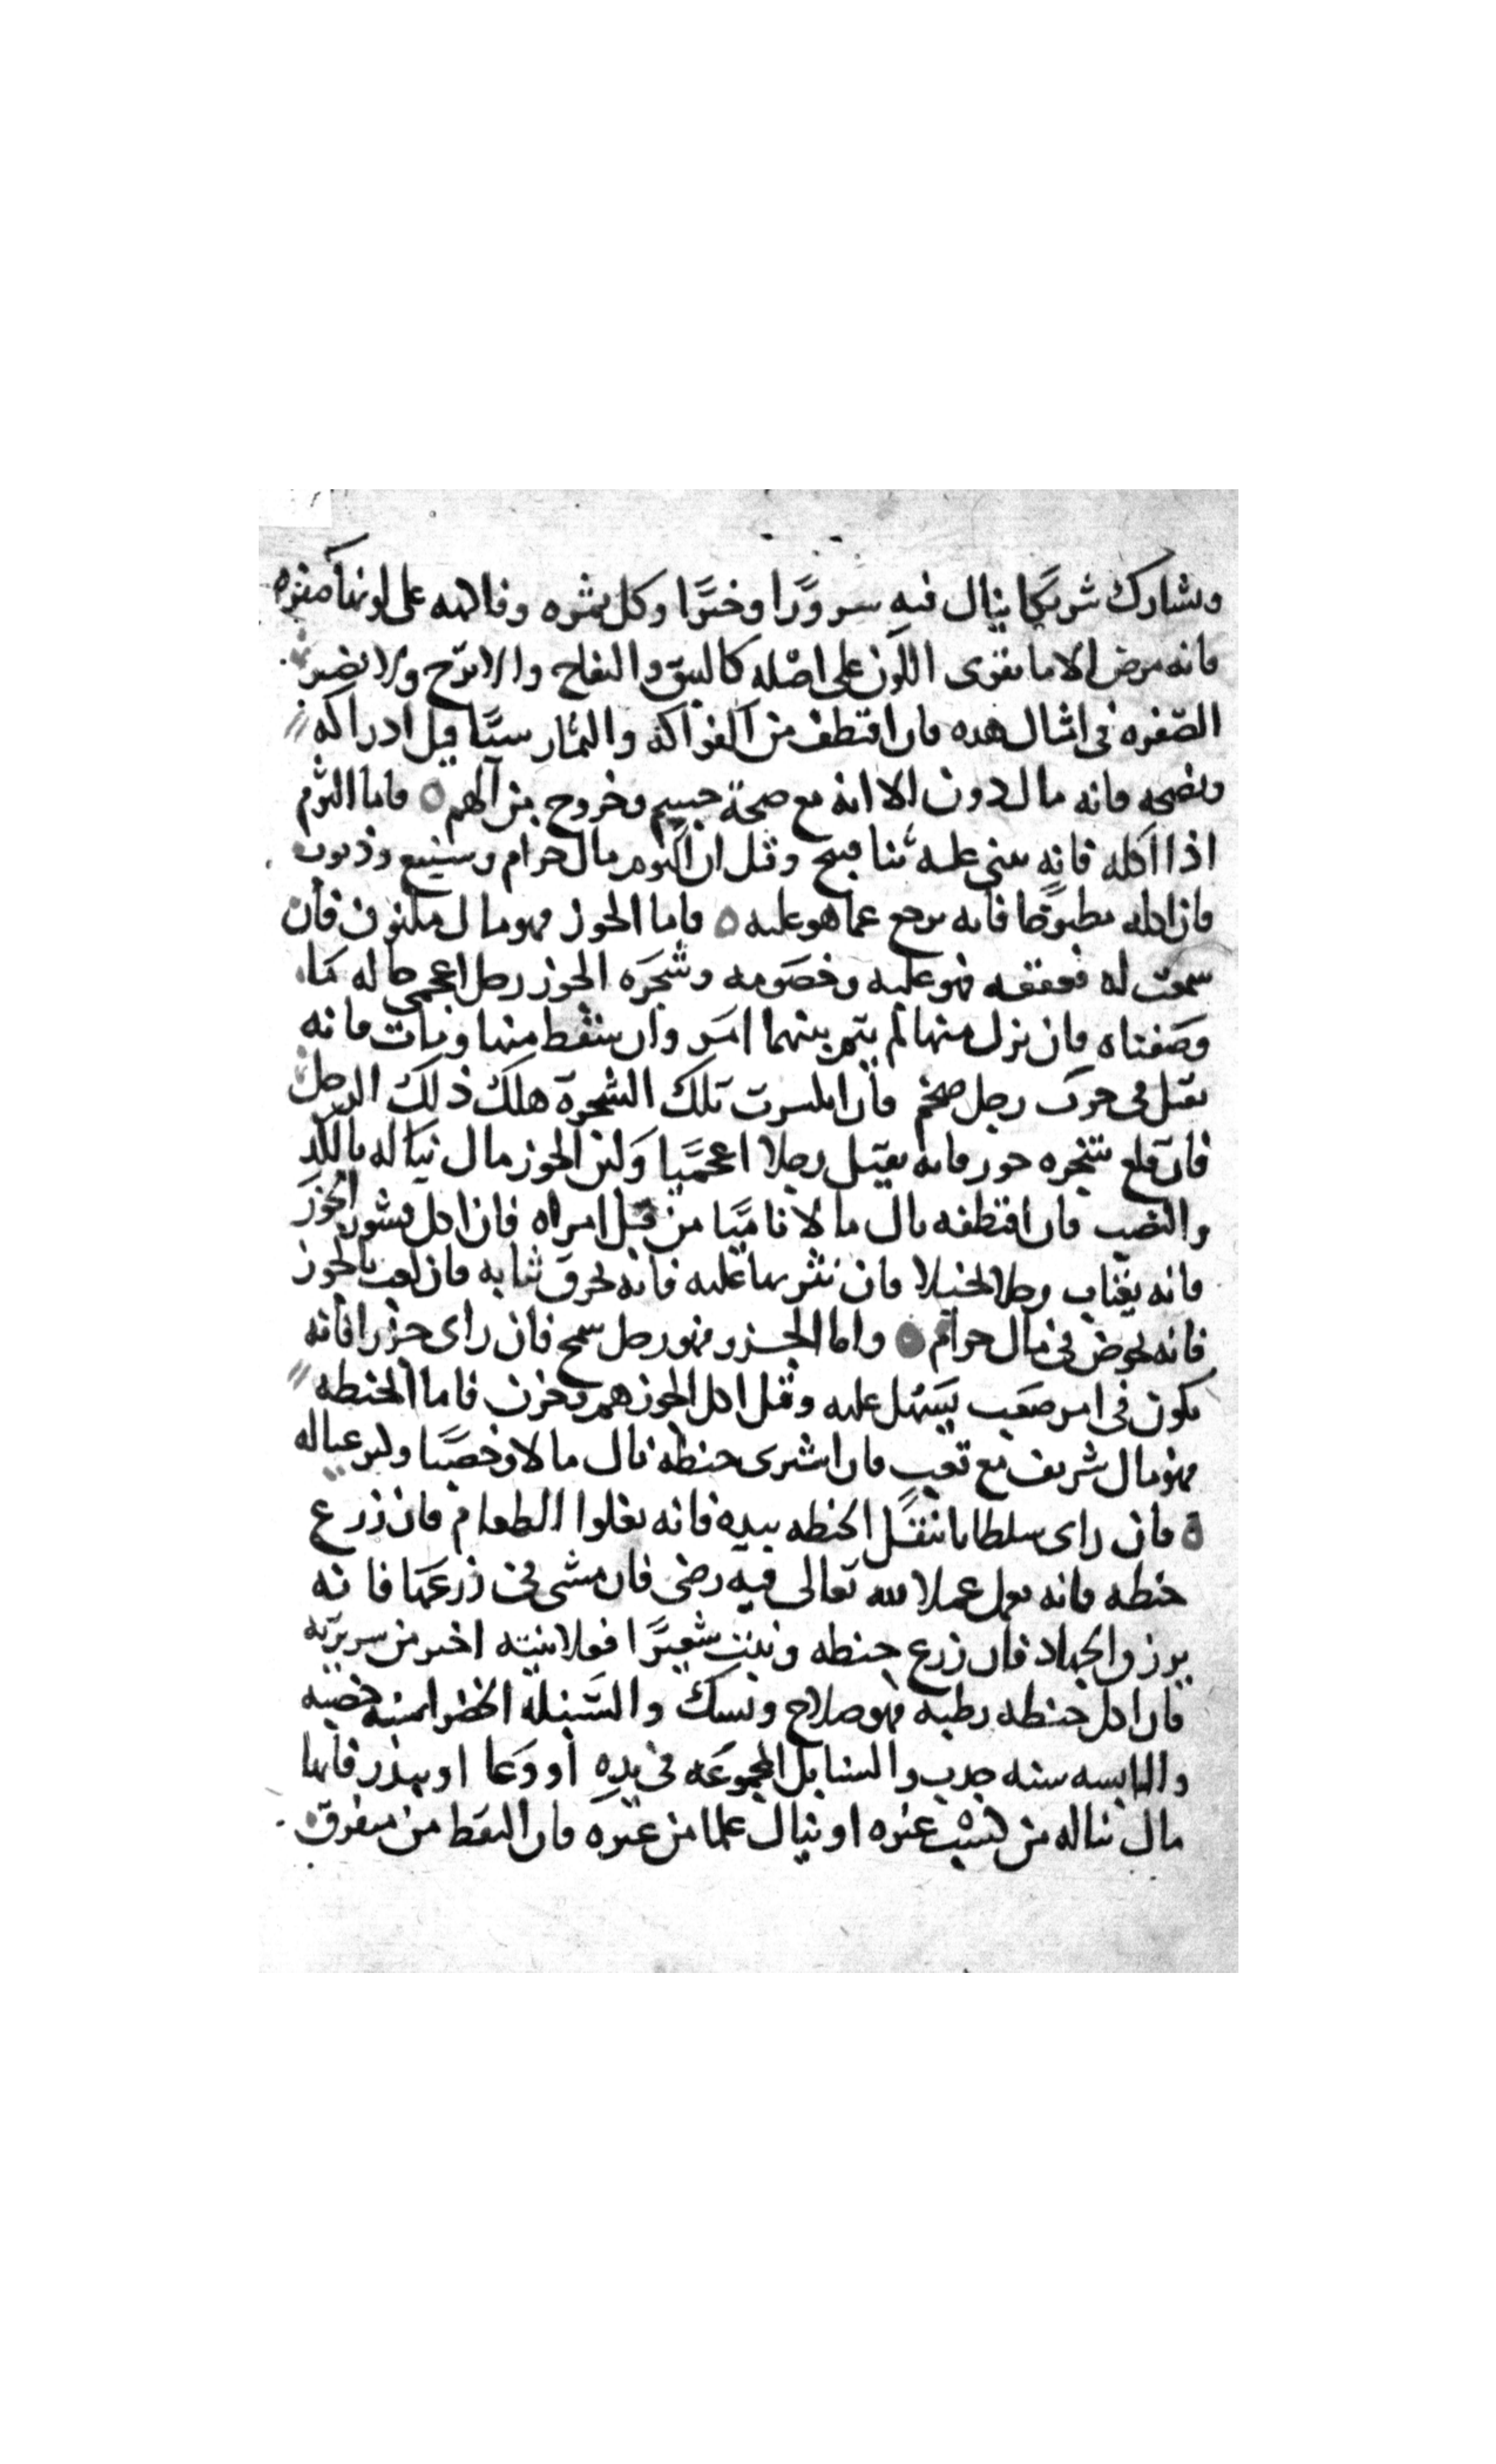 ويشارك شريكا ينال فيه سرورا وخيرا وكل ثمره وفاكهه على لونها صفره
فانه مرض الا ما يقوى اللون على اصله كالنبق والتفاح والاترج ولا يضر
الصفره في امثال هده فان اقتطف من الفواكه والثمار ستا قبل ادراكه
ونضجه فانه مال دون الا انه مع صحة جسم وخروج من الهم فاما الثوم
اذا اكله فانه يثنى عليه ثنا قبيح وقيل ان الثوم مال حرام وشنيع وذنوب
فان اكله مطبوخا فانه يرجع عما هو عليه فاما الجوز فهو مال مكنوز فان
سمعت له قعقعه فهو علبه وخصومه وشجره الجوز رجل اعجمي حاله كما
وصفناه فان نزل منها لم يتم بينهما امر وان سقط منها ومات فانه
يقتل في حرب رجل ضخم فان انكسرت تلك الشجرة هلك ذلك الرجل
فان قلع شجره جوز فانه يقتل رجلا اعجميا ولبن الجوز مال يناله بالكد
والنصب فان اقتطفه نال مالا ناميا من قبل امراه فان اكل قشور الجوز
فانه يغتاب رجلا بخيلا فان نثر بها عليه فانه يحرق ثيابه فان لعب بالجوز
فانه يخوض في مال حرام واما الجزر فهو رجل سمح فان راى جزرا فانه
يكون في امر صعب يسهل عليه وقيل اكل الجوز هم وحزن فاما الحنطه
فهو مال شريف مع تعب فان اشترى حنطه نال مالا وخصبا وكثر عياله
فان راى سلطانا ينقل الحنطه بيده فانه يغلوا الطعام فان زرع
حنطه فانه يعمل عملا لله تعالى فيه رضى فان مشى في زرعها فانه
يرزق الجهاد فان زرع حنطه ونبتت شعيرا فعلانيته اخير من سريرته
فان اكل حنطه رطبه فهو صلاح ونسك والسنبله الخضرا سنه خصبه
واليابسه سنه جدب والسنابل المجموعه في يده او وعا او بيدر فانها
مال يناله من كسب غيره او ينال علما من غيره فان التقط من متفرق